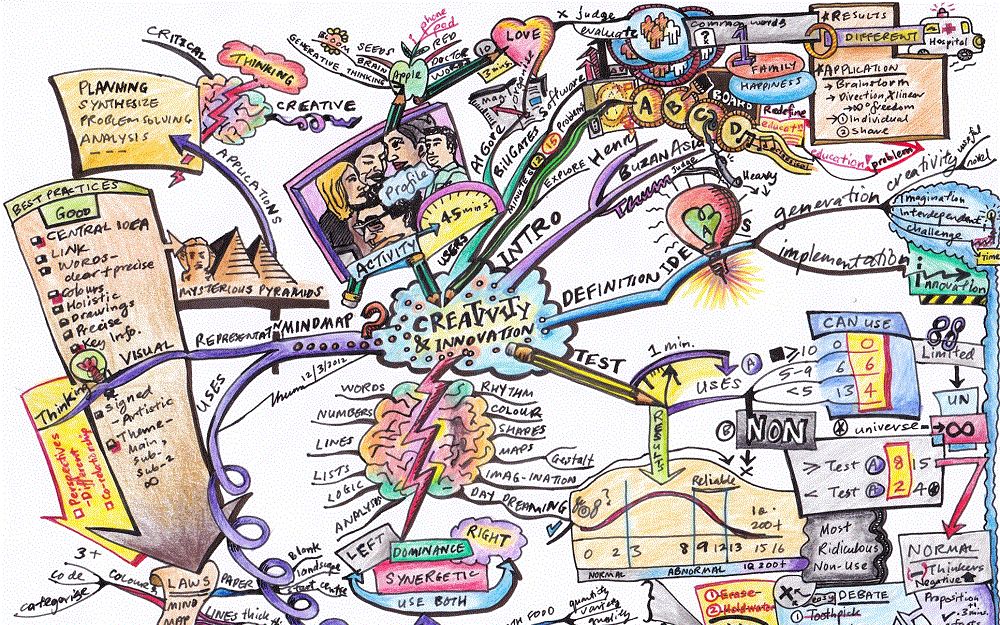 CRITICAL
THINKING
CREATIVE
PLANNING
SYNTHESIZE
PROBLEM SOLVING
ANALYSIS
APPLICATIONS
SEEDS
BRAIN
GENERATIVE THINKING
phone
Pod
RED
DOCTOR
WORDS
Apple
10
3 mins.
LOVE
x judge
evaluate
common words
?
1
* RESULTS
1
DIFFERENT
Hospital
FAMILY
HAPPINESS
* APPLICATION
→ Brainstorm
→ Direction x linear
→ 360° freedom
→ ① Individual
② Share
BOARD
A
B
C
D
Redefine
education
education problem
Map
organize
software
Al Gore
BILL GATES
MINUTES
12
15
Problem
EXPLORE
Henry
BUZAN ASIA
Thum
Judge
Heavy
Profile
ACTIVITY
45 mins
USERS
INTRO
DEFINITION IDEAS
generation creativity
useful
novel
Imagination
Interdependent
challenge
Time
implementation
innovation
CREATIVITY
& INNOVATION
BEST PRACTICES
GOOD
CENTRAL IDEA
LINK
WORDS-
clear + precise
Colours
Holistic
Drawings
Precise
Key info.
signed
- Artistic
- Theme-
Main,
Sub-1
Sub-2
∞
MYSTERIOUS PYRAMIDS
REPRESENTATION
MINDMAP
?
VISUAL
Thinking
Perspectives
- Different
Co-relationship
USES
Thum 12/3/2012
WORDS
NUMBERS
LINES
LISTS
LOGIC
ANALYSIS
RHYTHM
COLOUR
SHAPES
MAPS
Gestalt
IMAG-INATION
DAY DREAMING
LEFT
DOMINANCE
RIGHT
SYNERGETIC
USE BOTH
TEST
1 min.
USES
A
CAN USE
≥10 0 0
5-9 6 6
<5 13 4
Limited
UN
∞
B
NON
universe
≥ Test A 8 15
< Test A 2 4
RESULTS
Reliable
?
IQ
200+
0 2 3 8 9 12 13 15 16
NORMAL ABNORMAL IQ 200+
Most
Ridiculous
Non-Use
NORMAL
Thinkers
Negative
Proposition
3+
code
categorise
Colours
LAWS
MIND
MAP
PAPER
Blank
landscape
start centre
LINES thick
FOOD
quantity
variety
quality
① Erase
② Hold water
easy
DEBATE
① Toothpick